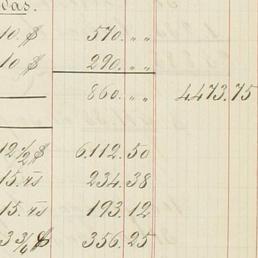 das.
10. $ 570. " "
10 $ 290. " "
860. " " 4473.75
12 1/2 $ 6.112.50
15. rs 234.38
15. rs 193.12
3 3/6 $ 356.25